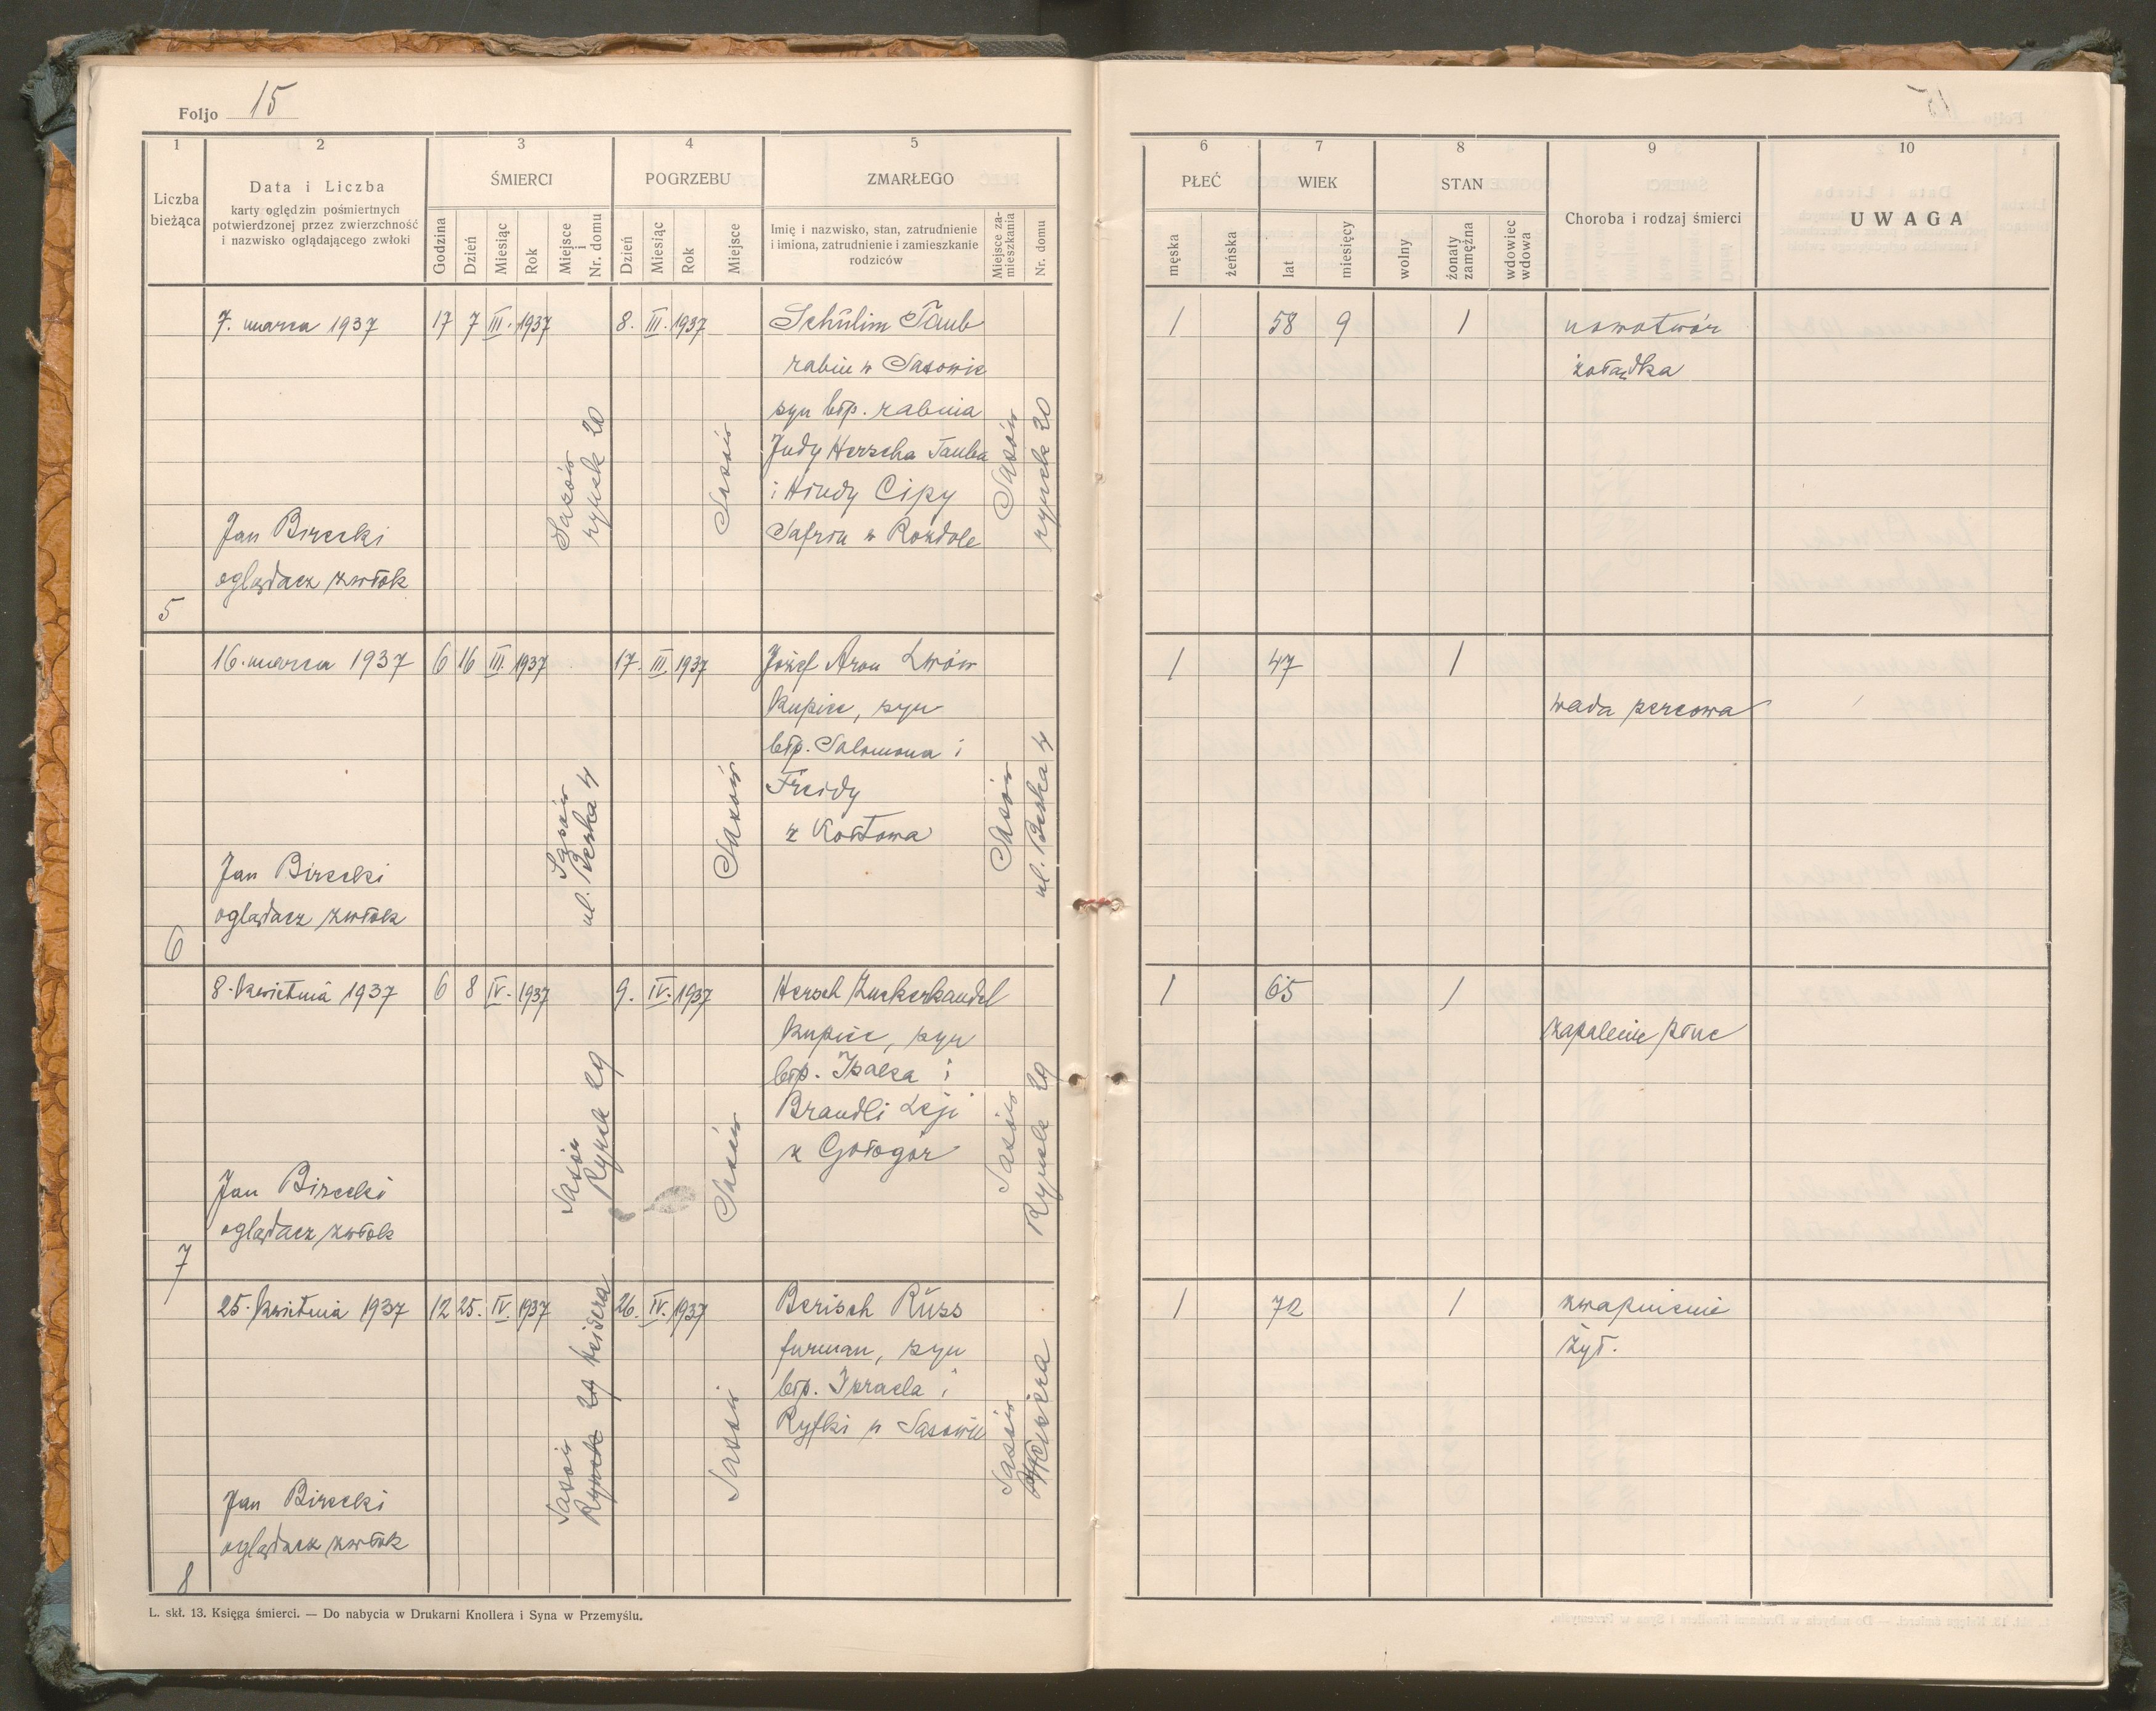 Foljo 15
1 2 3 4 5 6 7 8 9 10
Liczba bieżąca
Data i Liczba
karty oględzin pośmiertnych
potwierdzonej przez zwierzchność
i nazwisko oglądającego zwłoki
ŚMIERCI
Godzina
Dzień
Miesiąc
Rok
Miejsce i Nr. domu
POGRZEBU
Dzień
Miesiąc
Rok
Miejsce
ZMARŁEGO
Imię i nazwisko, stan, zatrudnienie
i imiona, zatrudnienie i zamieszkanie
rodziców
Miejsce za-
mieszkania
Nr. domu
PŁEĆ
męska
żeńska
WIEK
lat
miesięcy
STAN
wolny
żonaty
zamężna
wdowiec
wdowa
Choroba i rodzaj śmierci
UWAGA
7. marca 1937 17 7 III. 1937 8. III. 1937 Schülim Taub 1 58 9 1 nowotwór
rabin w Sasowie żołądka
syn błp. rabina
Judy Herscha Tauba
i Hindy Cipy
Safrin w Rozdole
Sasów
rynek 20
Sasów
Sasów
rynek 20
Jan Birecki
oglądacz zwłok
5
16. marca 1937 6 16 III. 1937 17. III. 1937 Józef Aron Lwów 1 47 1
kupiec, syn wada sercowa
błp. Salomona i
Freidy
z Kołtowa
Sasów
ul. Boska 4
Sasów
Sasów
ul. Boska 4
Jan Birecki
oglądacz zwłok
6
8. kwietnia 1937 6 8 IV. 1937 9. IV. 1937 Hersch Zuckerkandel 1 65 1
kupiec, syn zapalenie płuc
błp. Izaka i
Brandli Leji
z Gołogór
Sasów
Rynek 29
Sasów
Sasów
Rynek 29
Jan Birecki
oglądacz zwłok
7
25. kwietnia 1937 12 25. IV. 1937 26. IV. 1937 Berisch Rüss 1 72 1 zwapnienie
furman, syn żył.
błp. Izraela i
Ryfki w Sasowie
Sasów
Rynek 29
Sasów
Sasów
Jan Birecki
oglądacz zwłok
8
L. skł. 13. Księga śmierci. — Do nabycia w Drukarni Knollera i Syna w Przemyślu.